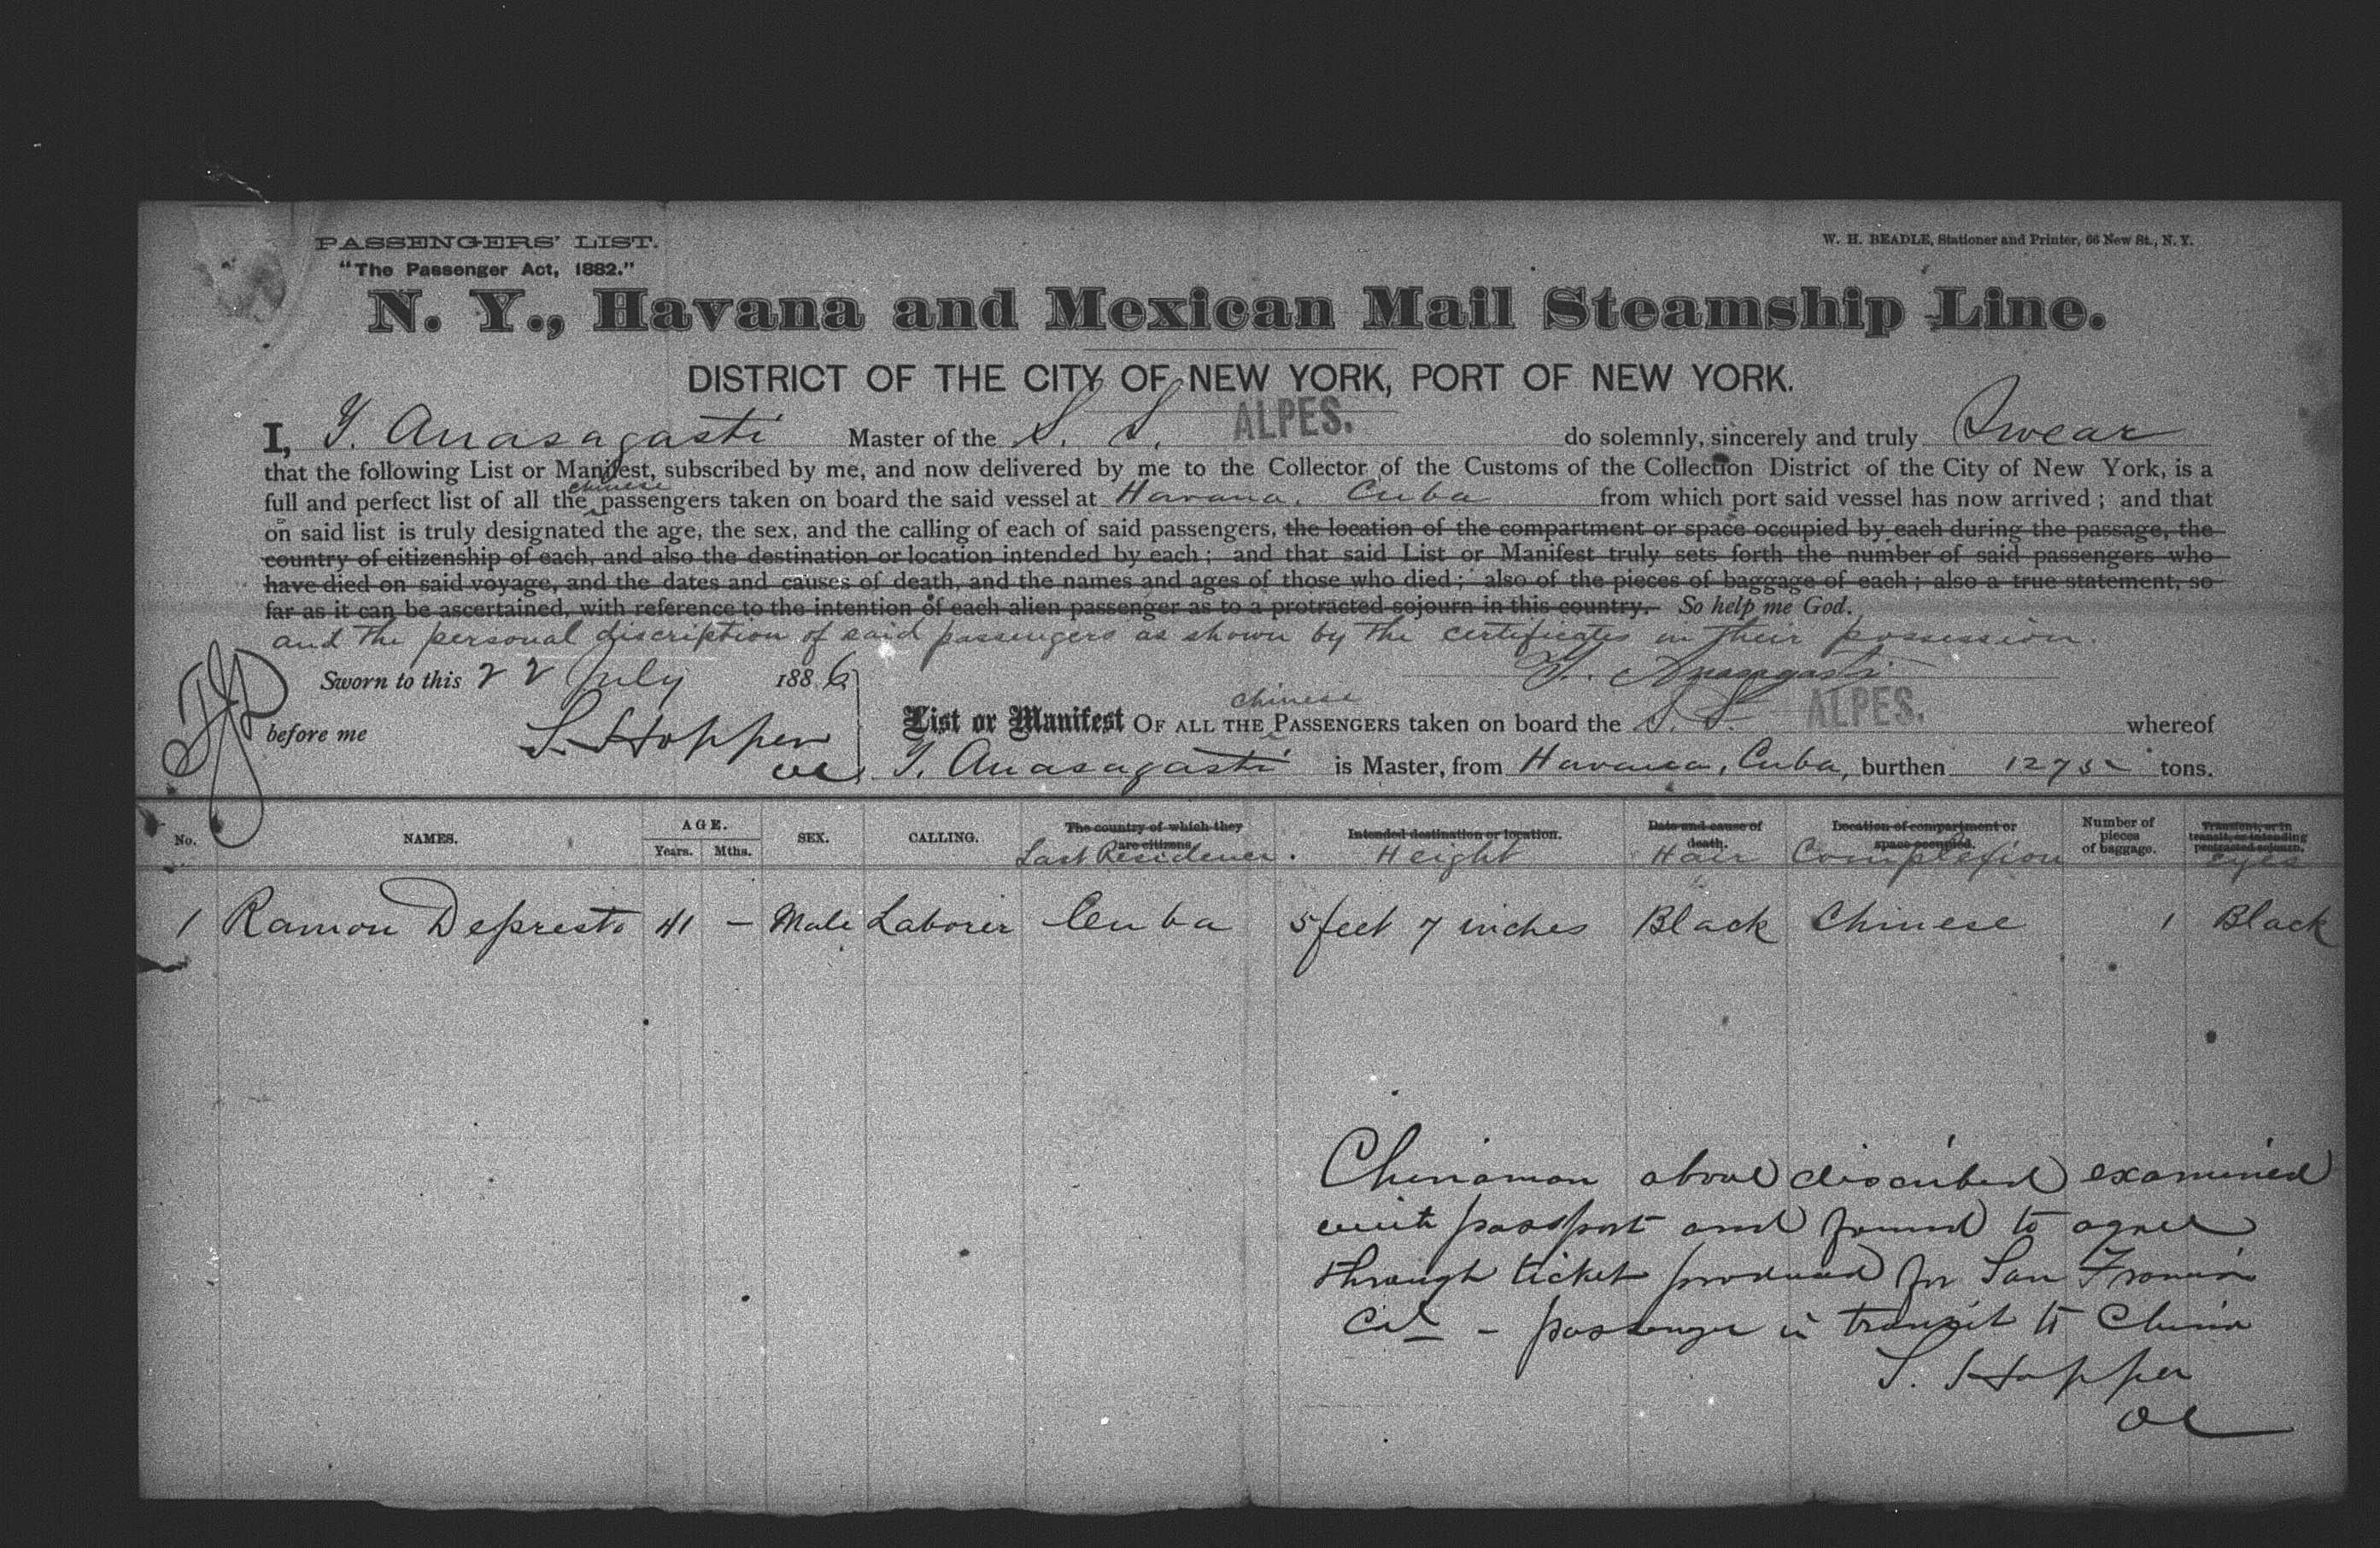 PASSENGERS' LIST.
"The Passenger Act, 1882."
W. H. BEADLE, Stationer and Printer, 66 New St., N. Y.
N. Y., Havana and Mexican Mail Steamship Line.
DISTRICT OF THE CITY OF NEW YORK, PORT OF NEW YORK.
I, Y. Anasagasti Master of the S. S. ALPES. do solemnly, sincerely and truly Swear
that the following List or Manifest, subscribed by me, and now delivered by me to the Collector of the Customs of the Collection District of the City of New York, is a
full and perfect list of all the chinese passengers taken on board the said vessel at Havana, Cuba from which port said vessel has now arrived; and that
on said list is truly designated the age, the sex, and the calling of each of said passengers, the location of the compartment or space occupied by each during the passage, the
country of citizenship of each, and also the destination or location intended by each; and that said List or Manifest truly sets forth the number of said passengers who
have died on said voyage, and the dates and causes of death, and the names and ages of those who died; also of the pieces of baggage of each; also a true statement, so
far as it can be ascertained, with reference to the intention of each alien passenger as to a protracted sojourn in this country. So help me God.
and the personal discription of said passengers as shown by the certificates in their possession.
Sworn to this 22 July 1886
Y. Anasagasti
before me S. Hopper
List or Manifest OF ALL THE chinese PASSENGERS taken on board the S. S. ALPES. whereof
Y. Anasagasti is Master, from Havana, Cuba, burthen tons.
No. NAMES. AGE. Years. Mths. SEX. CALLING. The country of which they are citizens. Last Residence. Intended destination or location. Height Date and cause of death. Hair Location of compartment or space occupied. Complexion Number of pieces of baggage. Transient, or in transit, or intending protracted sojourn. eyes
1 Ramon Depresto 41 – Male Laborer Cuba 5 feet 7 inches Black Chinese 1 Black
Chinaman above discribed examined
with passport and found to agree
through ticket produced for San Francis
Cal – passenger in transit to China
S. Hopper